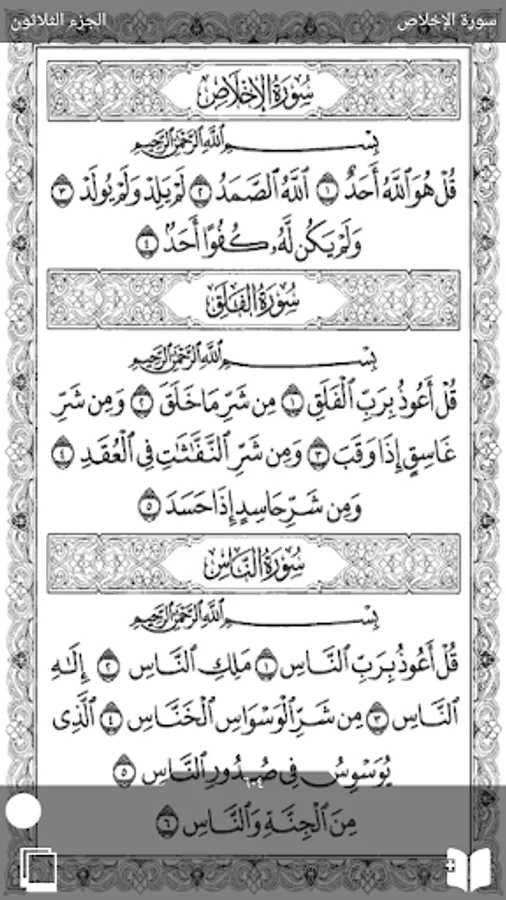 سورة الإخلاص الجزء الثلاثون
سُورَةُ الإِخْلَاصِ
بِسْمِ ٱللَّهِ ٱلرَّحْمَٰنِ ٱلرَّحِيمِ
قُلْ هُوَ ٱللَّهُ أَحَدٌ ١ ٱللَّهُ ٱلصَّمَدُ ٢ لَمْ يَلِدْ وَلَمْ يُولَدْ ٣
وَلَمْ يَكُن لَّهُۥ كُفُوًا أَحَدٌۢ ٤
سُورَةُ الفَلَقِ
بِسْمِ ٱللَّهِ ٱلرَّحْمَٰنِ ٱلرَّحِيمِ
قُلْ أَعُوذُ بِرَبِّ ٱلْفَلَقِ ١ مِن شَرِّ مَا خَلَقَ ٢ وَمِن شَرِّ
غَاسِقٍ إِذَا وَقَبَ ٣ وَمِن شَرِّ ٱلنَّفَّٰثَٰتِ فِى ٱلْعُقَدِ ٤
وَمِن شَرِّ حَاسِدٍ إِذَا حَسَدَ ٥
سُورَةُ النَّاسِ
بِسْمِ ٱللَّهِ ٱلرَّحْمَٰنِ ٱلرَّحِيمِ
قُلْ أَعُوذُ بِرَبِّ ٱلنَّاسِ ١ مَلِكِ ٱلنَّاسِ ٢ إِلَٰهِ
ٱلنَّاسِ ٣ مِن شَرِّ ٱلْوَسْوَاسِ ٱلْخَنَّاسِ ٤ ٱلَّذِى
يُوَسْوِسُ فِى صُدُورِ ٱلنَّاسِ ٥
٦٠٤
مِنَ ٱلْجِنَّةِ وَٱلنَّاسِ ٦